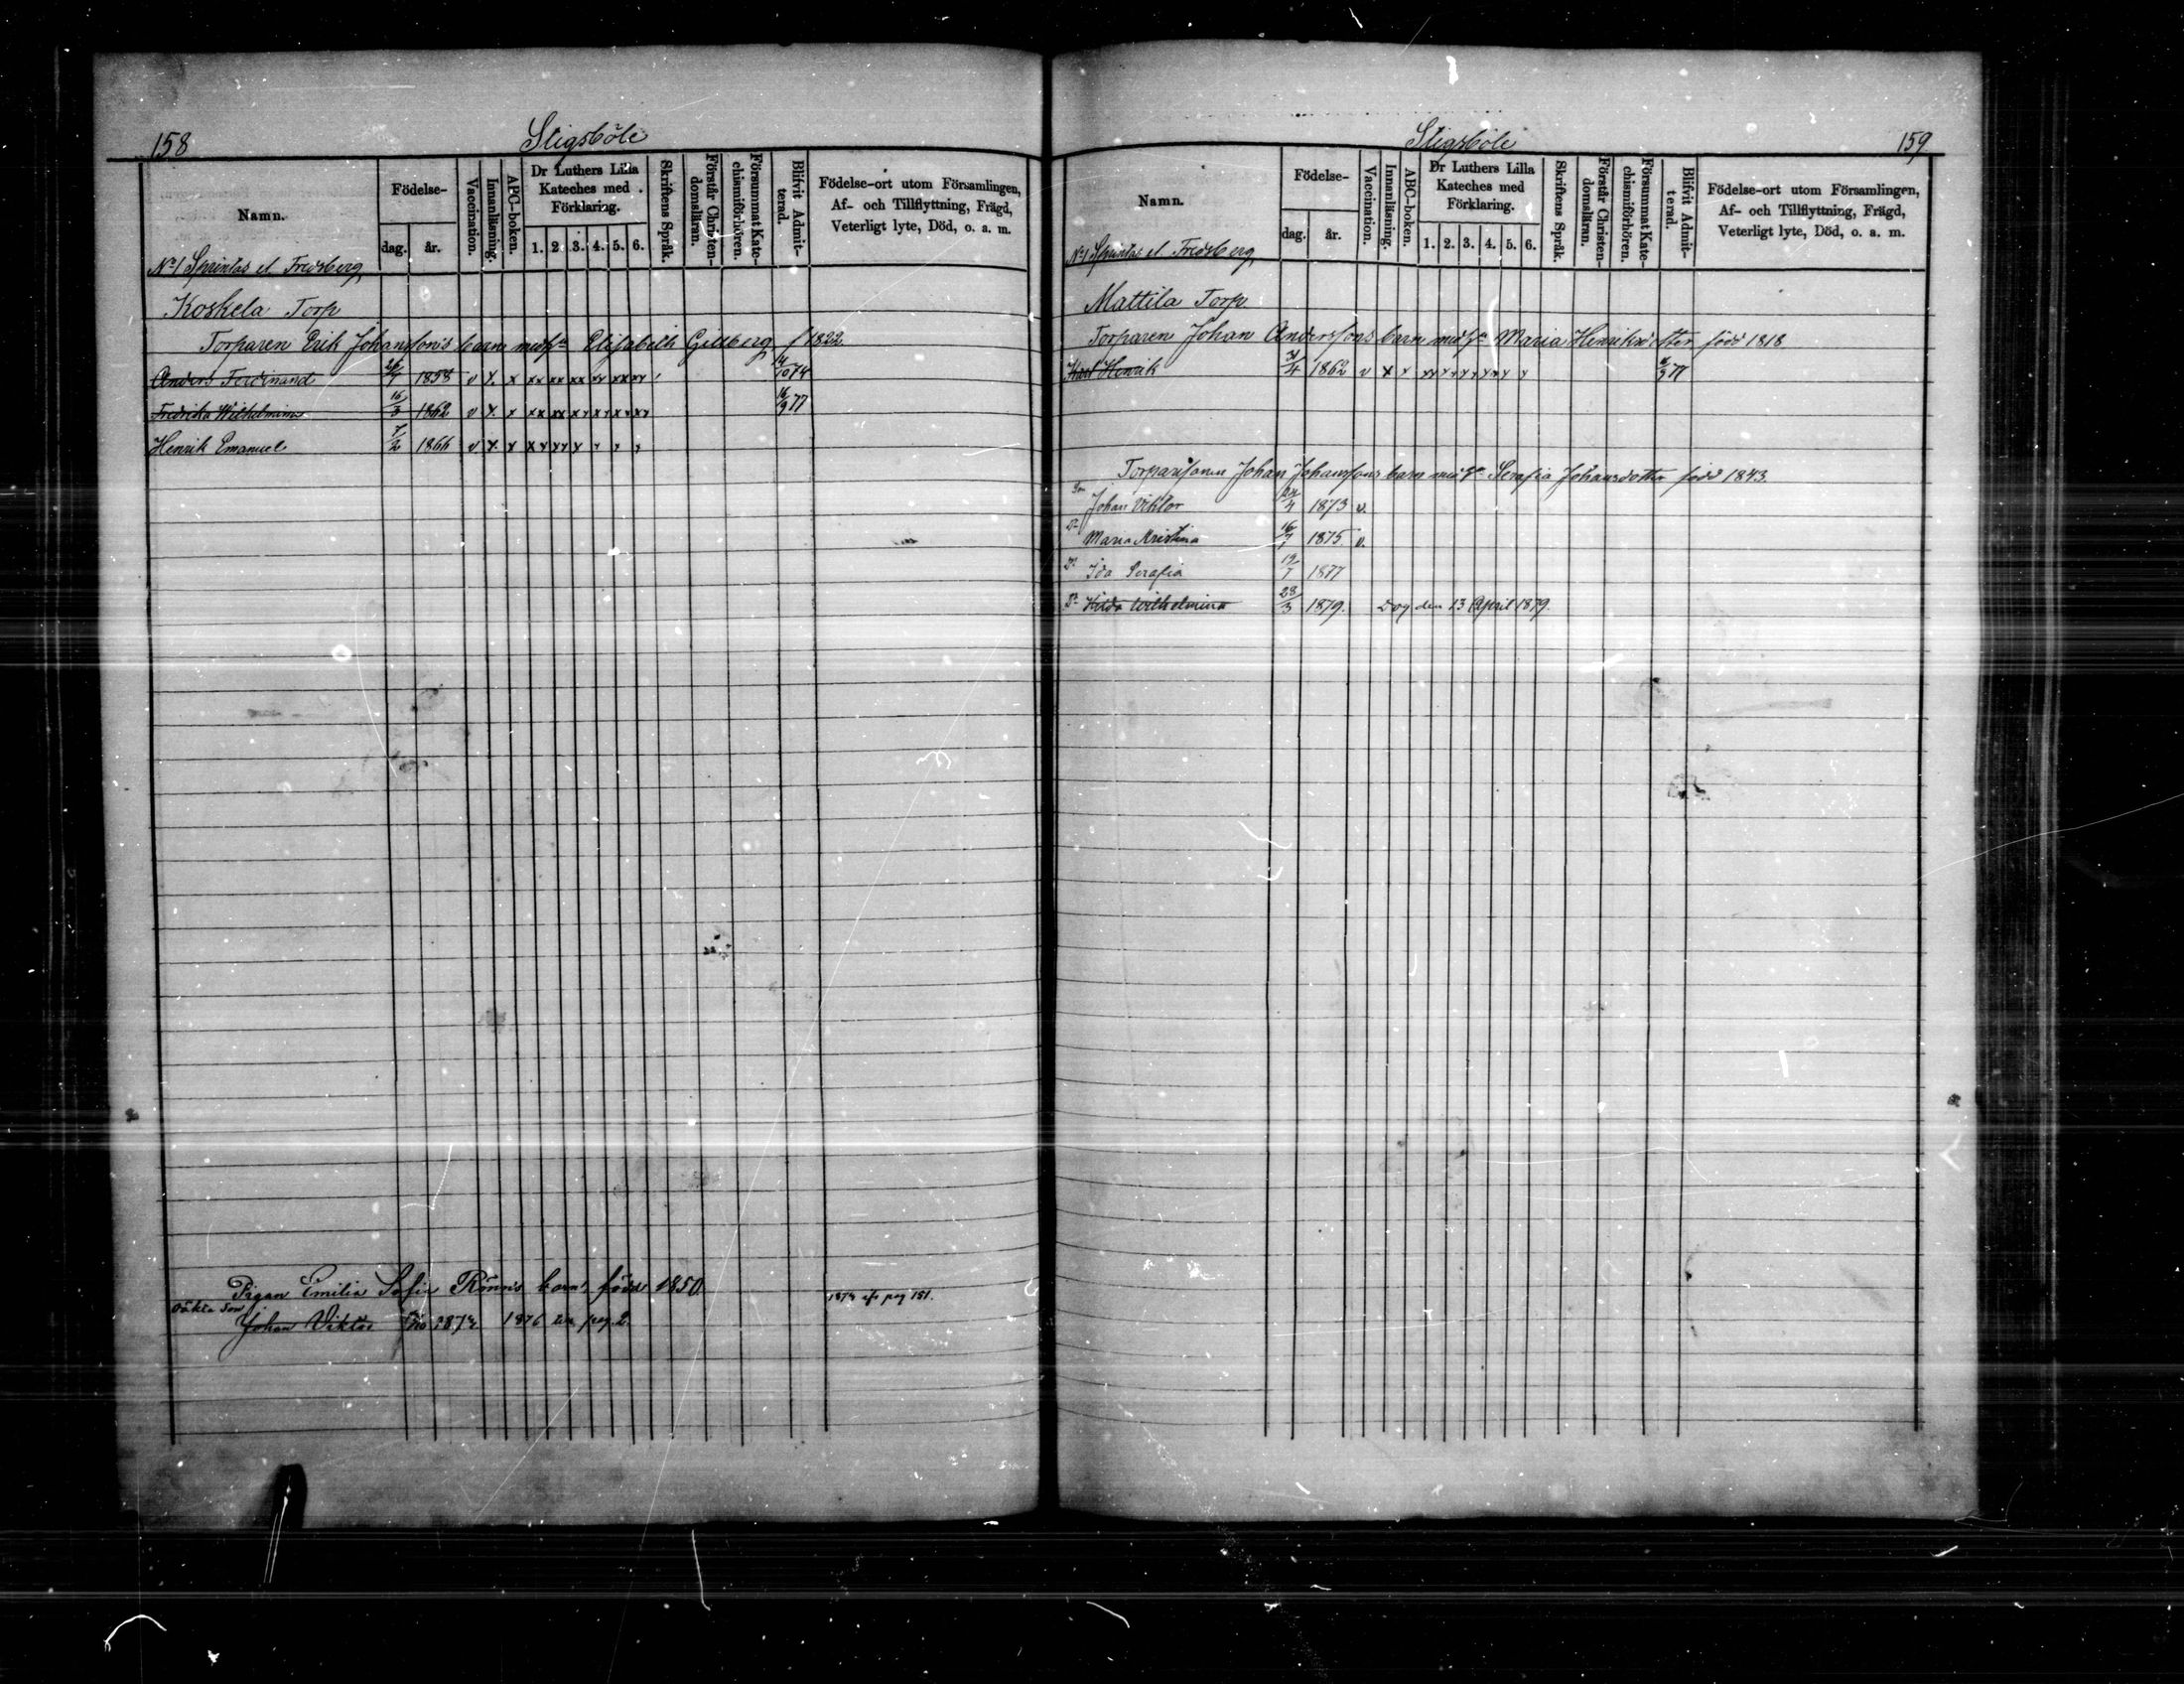 158 Stigsböle
Namn. Födelse- dag. år. Vaccination. Innanläsning. ABC-boken. Dr Luthers Lilla Kateches med Förklaring. 1. 2. 3. 4. 5. 6. Skriftens Språk. Förstår Christendomsläran. Försummat Katechismiförhören. Blifvit Admitterad. Födelse-ort utom Församlingen, Af- och Tillflyttning, Frägd, Veterligt lyte, Död, o. a. m.
No 1 Sprintas el. Fredsberg
Koskela Torp
Torparen Erik Johanssons barn med hu Elisabeth Gillberg f 1822
Anders Ferdinand 1858 v x x xx xx xx xx xx xx 74
Fredrika Wilhelmina 16/3 1862 v x x xx xx xx xx xx xx 77
Henrik Emanuel 7/2 1866 v x x xx xx x x x x
Pigan Emilia Sofia Rönnis barn, född 1850
oäkta son Johan Viktor 1876 pag 2. pag 151.
Stigsböle 159
Namn. Födelse- dag. år. Vaccination. Innanläsning. ABC-boken. Dr Luthers Lilla Kateches med Förklaring. 1. 2. 3. 4. 5. 6. Skriftens Språk. Förstår Christendomsläran. Försummat Katechismiförhören. Blifvit Admitterad. Födelse-ort utom Församlingen, Af- och Tillflyttning, Frägd, Veterligt lyte, Död, o. a. m.
No 1 Sprintas el. Fredsberg
Mattila Torp
Torparen Johan Anderssons barn med hu Maria Henriksdotter född 1818
Karl Henrik 1862 v x x xx xx xx xx x 77
Torparesonen Johan Johanssons barn med hu Serafia Johansdotter född 1843.
Son Johan Viktor 24/4 1873 v.
Dr Maria Kristina 16/7 1875 v.
Dr Ida Serafia 1877
Dr Hilda Wilhelmina 23/3 1879. Dog den 13 April 1879.